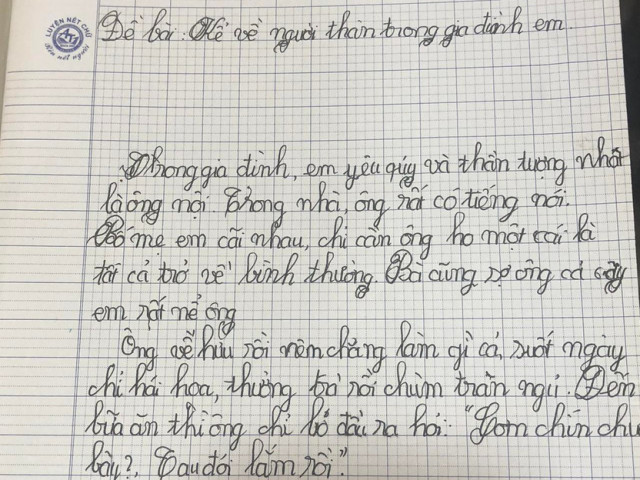 LUYỆN NẾT CHỮ
Rèn nết người
Đề bài: Kể về người thân trong gia đình em.
Trong gia đình, em yêu qúy và thần tượng nhất
là ông nội. Trong nhà, ông rất có tiếng nói.
Bố mẹ em cãi nhau, chỉ cần ông ho một cái là
tất cả trở về bình thường. Bà cũng sợ ông cơ
em rất nể ông
Ông về hưu rồi nên chẳng làm gì cả, suốt ngày
chỉ hái hoa, thưởng trà rồi chùm trăn ngủ. Đến
bữa ăn thì ông chỉ bỏ đầu ra hỏi: "Cơm chín chư
bay?, Tau đói lắm rồi".